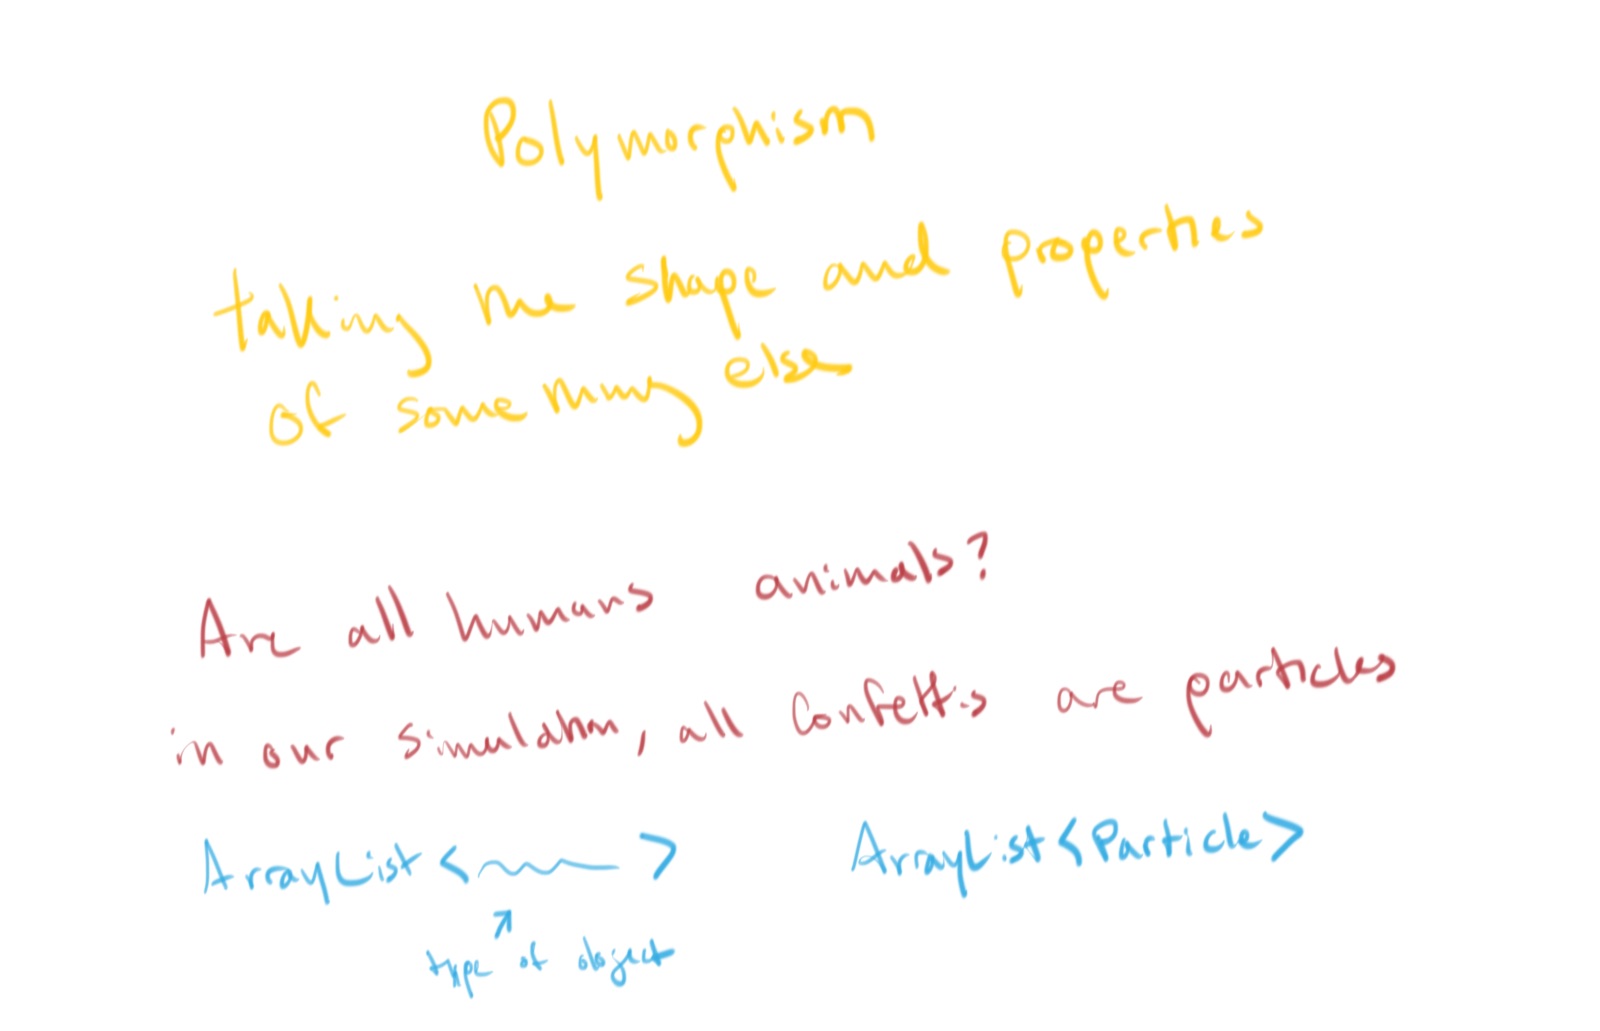 Polymorphism
taking the shape and properties
of something else
Are all humans animals?
in our simulation, all Confettis are particles
ArrayList < > ArrayList <Particle>
type of object